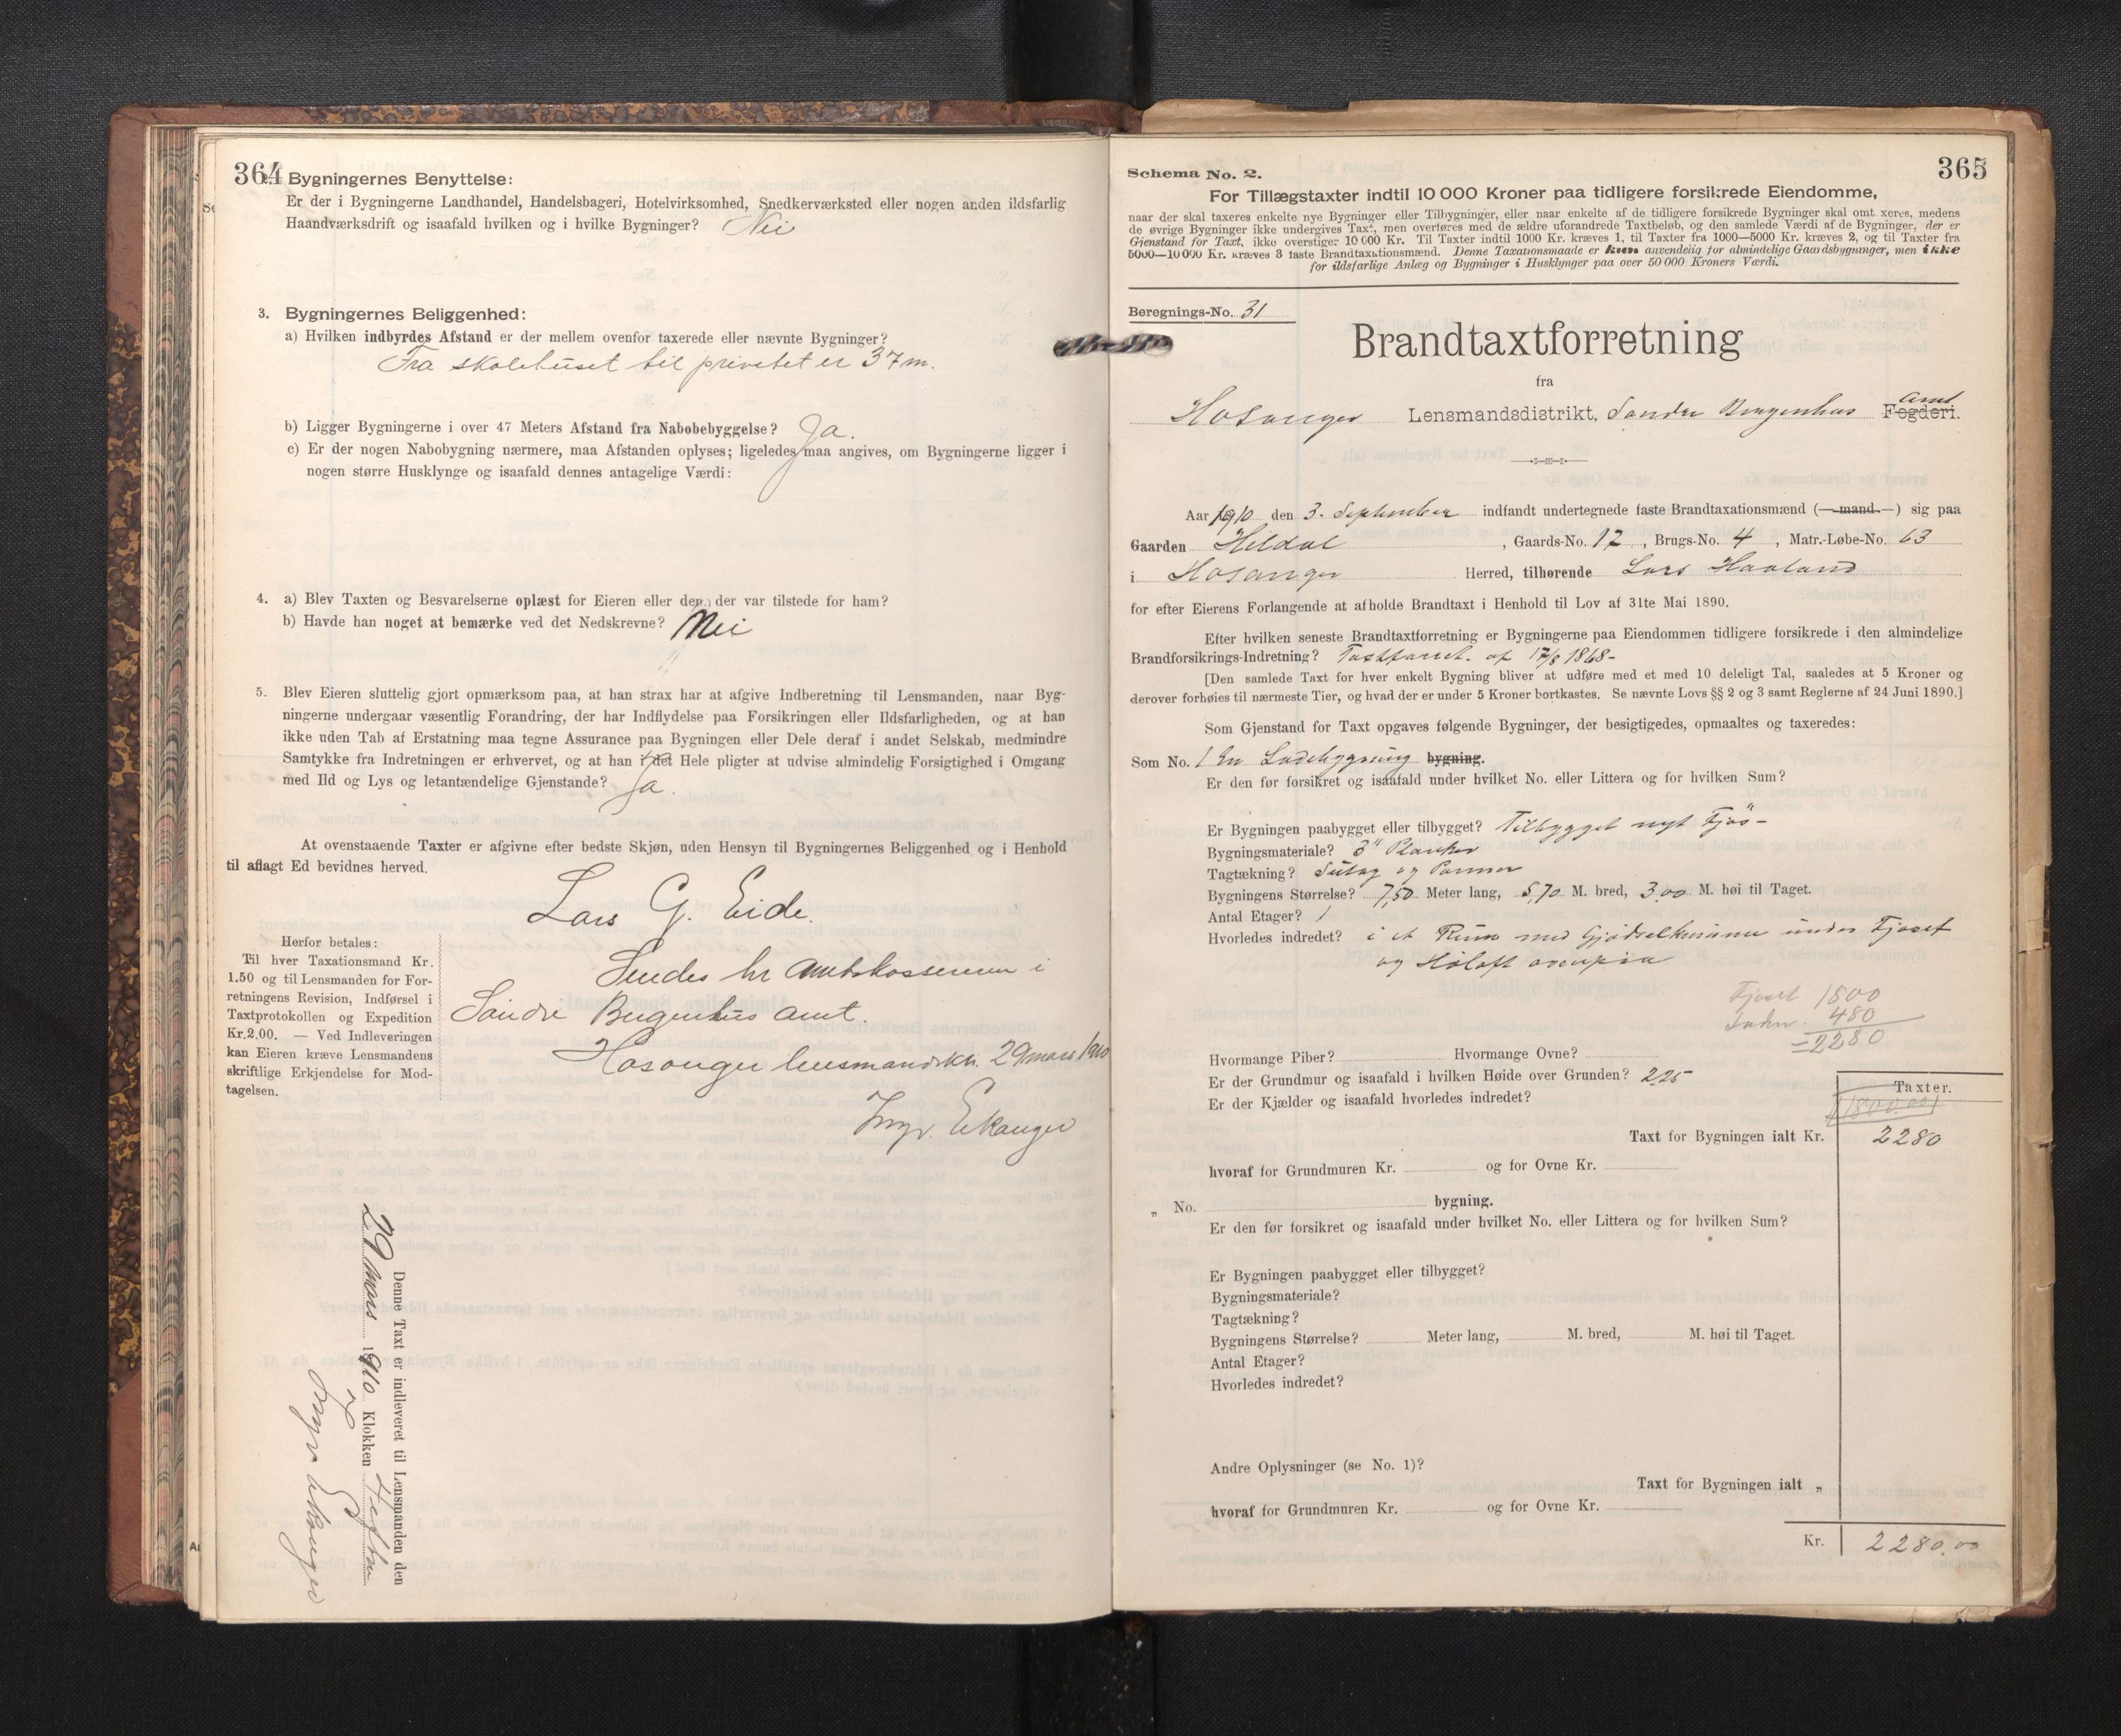 364
2. Bygningernes Benyttelse:
Er der i Bygningerne Landhandel, Handelsbageri, Hotelvirksomhed, Snedkerværksted eller nogen anden ildsfarlig
Haandværksdrift og isaafald hvilken og i hvilke Bygninger? Nei
3. Bygningernes Beliggenhed:
a) Hvilken indbyrdes Afstand er der mellem ovenfor taxerede eller nævnte Bygninger?
Fra skolehuset til privetet er 37 m.
b) Ligger Bygningerne i over 47 Meters Afstand fra Nabobebyggelse? Ja.
c) Er der nogen Nabobygning nærmere, maa Afstanden oplyses; ligeledes maa angives, om Bygningerne ligger i
nogen større Husklynge og isaafald dennes antagelige Værdi:
4. a) Blev Taxten og Besvarelserne oplæst for Eieren eller den, der var tilstede for ham?
b) Havde han noget at bemærke ved det Nedskrevne? Nei
5. Blev Eieren sluttelig gjort opmærksom paa, at han strax har at afgive Indberetning til Lensmanden, naar Byg-
ningerne undergaar væsentlig Forandring, der har Indflydelse paa Forsikringen eller Ildsfarligheden, og at han
ikke uden Tab af Erstatning maa tegne Assurance paa Bygningen eller Dele deraf i andet Selskab, medmindre
Samtykke fra Indretningen er erhvervet, og at han i det Hele pligter at udvise almindelig Forsigtighed i Omgang
med Ild og Lys og letantændelige Gjenstande? Ja.
At ovenstaaende Taxter er afgivne efter bedste Skjøn, uden Hensyn til Bygningernes Beliggenhed og i Henhold
til aflagt Ed bevidnes herved.
Lars G. Eide.
Herfor betales:
Til hver Taxationsmand Kr.
1.50 og til Lensmanden for For-
retningens Revision, Indførsel i
Taxtprotokollen og Expedition
Kr. 2.00. — Ved Indleveringen
kan Eieren kræve Lensmandens
skriftlige Erkjendelse for Mod-
tagelsen.
Sendes hr Amtskassereren i
Søndre Bergenhus amt.
Hosanger lensmandskt. 29 mars 1910
Ingv. Ekanger
Denne Taxt er indleveret til Lensmanden den
29 mars 1910 Klokken
Ingv. Ekanger
365
Schema No. 2.
For Tillægstaxter indtil 10 000 Kroner paa tidligere forsikrede Eiendomme,
naar der skal taxeres enkelte nye Bygninger eller Tilbygninger, eller naar enkelte af de tidligere forsikrede Bygninger skal omt xeres, medens
de øvrige Bygninger ikke undergives Taxt, men overføres med de ældre uforandrede Taxtbeløb, og den samlede Værdi af de Bygninger, der er
Gjenstand for Taxt, ikke overstiger 10 000 Kr. Til Taxter indtil 1000 Kr. kræves 1, til Taxter fra 1000—5000 Kr. kræves 2, og til Taxter fra
5000—10 000 Kr. kræves 3 faste Brandtaxationsmænd. Denne Taxationsmaade er kun anvendelig for almindelige Gaardsbygninger, men ikke
for ildsfarlige Anlæg og Bygninger i Husklynger paa over 50 000 Kroners Værdi.
Beregnings-No. 31
Brandtaxtforretning
fra
Hosanger Lensmandsdistrikt, Søndre Bergenhus Amt Fogderi.
Aar 1910 den 3. September indfandt undertegnede faste Brandtaxationsmænd (—mand—) sig paa
Gaarden Heldal, Gaards-No. 12, Brugs-No. 4, Matr.-Løbe-No. 63
i Hosanger Herred, tilhørende Lars Haaland
for efter Eierens Forlangende at afholde Brandtaxt i Henhold til Lov af 31te Mai 1890.
Efter hvilken seneste Brandtaxtforretning er Bygningerne paa Eiendommen tidligere forsikrede i den almindelige
Brandforsikrings-Indretning? Taxtforret. af 17/8 1868-
[Den samlede Taxt for hver enkelt Bygning bliver at udføre med et med 10 deleligt Tal, saaledes at 5 Kroner og
derover forhøies til nærmeste Tier, og hvad der er under 5 Kroner bortkastes. Se nævnte Lovs §§ 2 og 3 samt Reglerne af 24 Juni 1890.]
Som Gjenstand for Taxt opgaves følgende Bygninger, der besigtigedes, opmaaltes og taxeredes:
Som No. 1 En Ladebygning bygning.
Er den før forsikret og isaafald under hvilket No. eller Littera og for hvilken Sum?
Er Bygningen paabygget eller tilbygget? Tilbygget nyt Fjøs-
Bygningsmateriale? 3" Planker
Tagtækning? Sutag og Panner
Bygningens Størrelse? 7,50 Meter lang, 5,70 M. bred, 3,00 M. høi til Taget.
Antal Etager? 1
Hvorledes indredet? i et Rum med Gjødselkummer under Fjøset
og Høloft ovenpaa
Fjøset 1800
Laden 480
=2280
Hvormange Piber? Hvormange Ovne?
Er der Grundmur og isaafald i hvilken Høide over Grunden? 2,25
Er der Kjælder og isaafald hvorledes indredet?
Taxter.
1800.00
Taxt for Bygningen ialt Kr. 2280
hvoraf for Grundmuren Kr. og for Ovne Kr.
„ No. bygning.
Er den før forsikret og isaafald under hvilket No. eller Littera og for hvilken Sum?
Er Bygningen paabygget eller tilbygget?
Bygningsmateriale?
Tagtækning?
Bygningens Størrelse? Meter lang, M. bred, M. høi til Taget.
Antal Etager?
Hvorledes indredet?
Andre Oplysninger (se No. 1)?
Taxt for Bygningen ialt „
hvoraf for Grundmuren Kr. og for Ovne Kr.
Kr. 2280.00